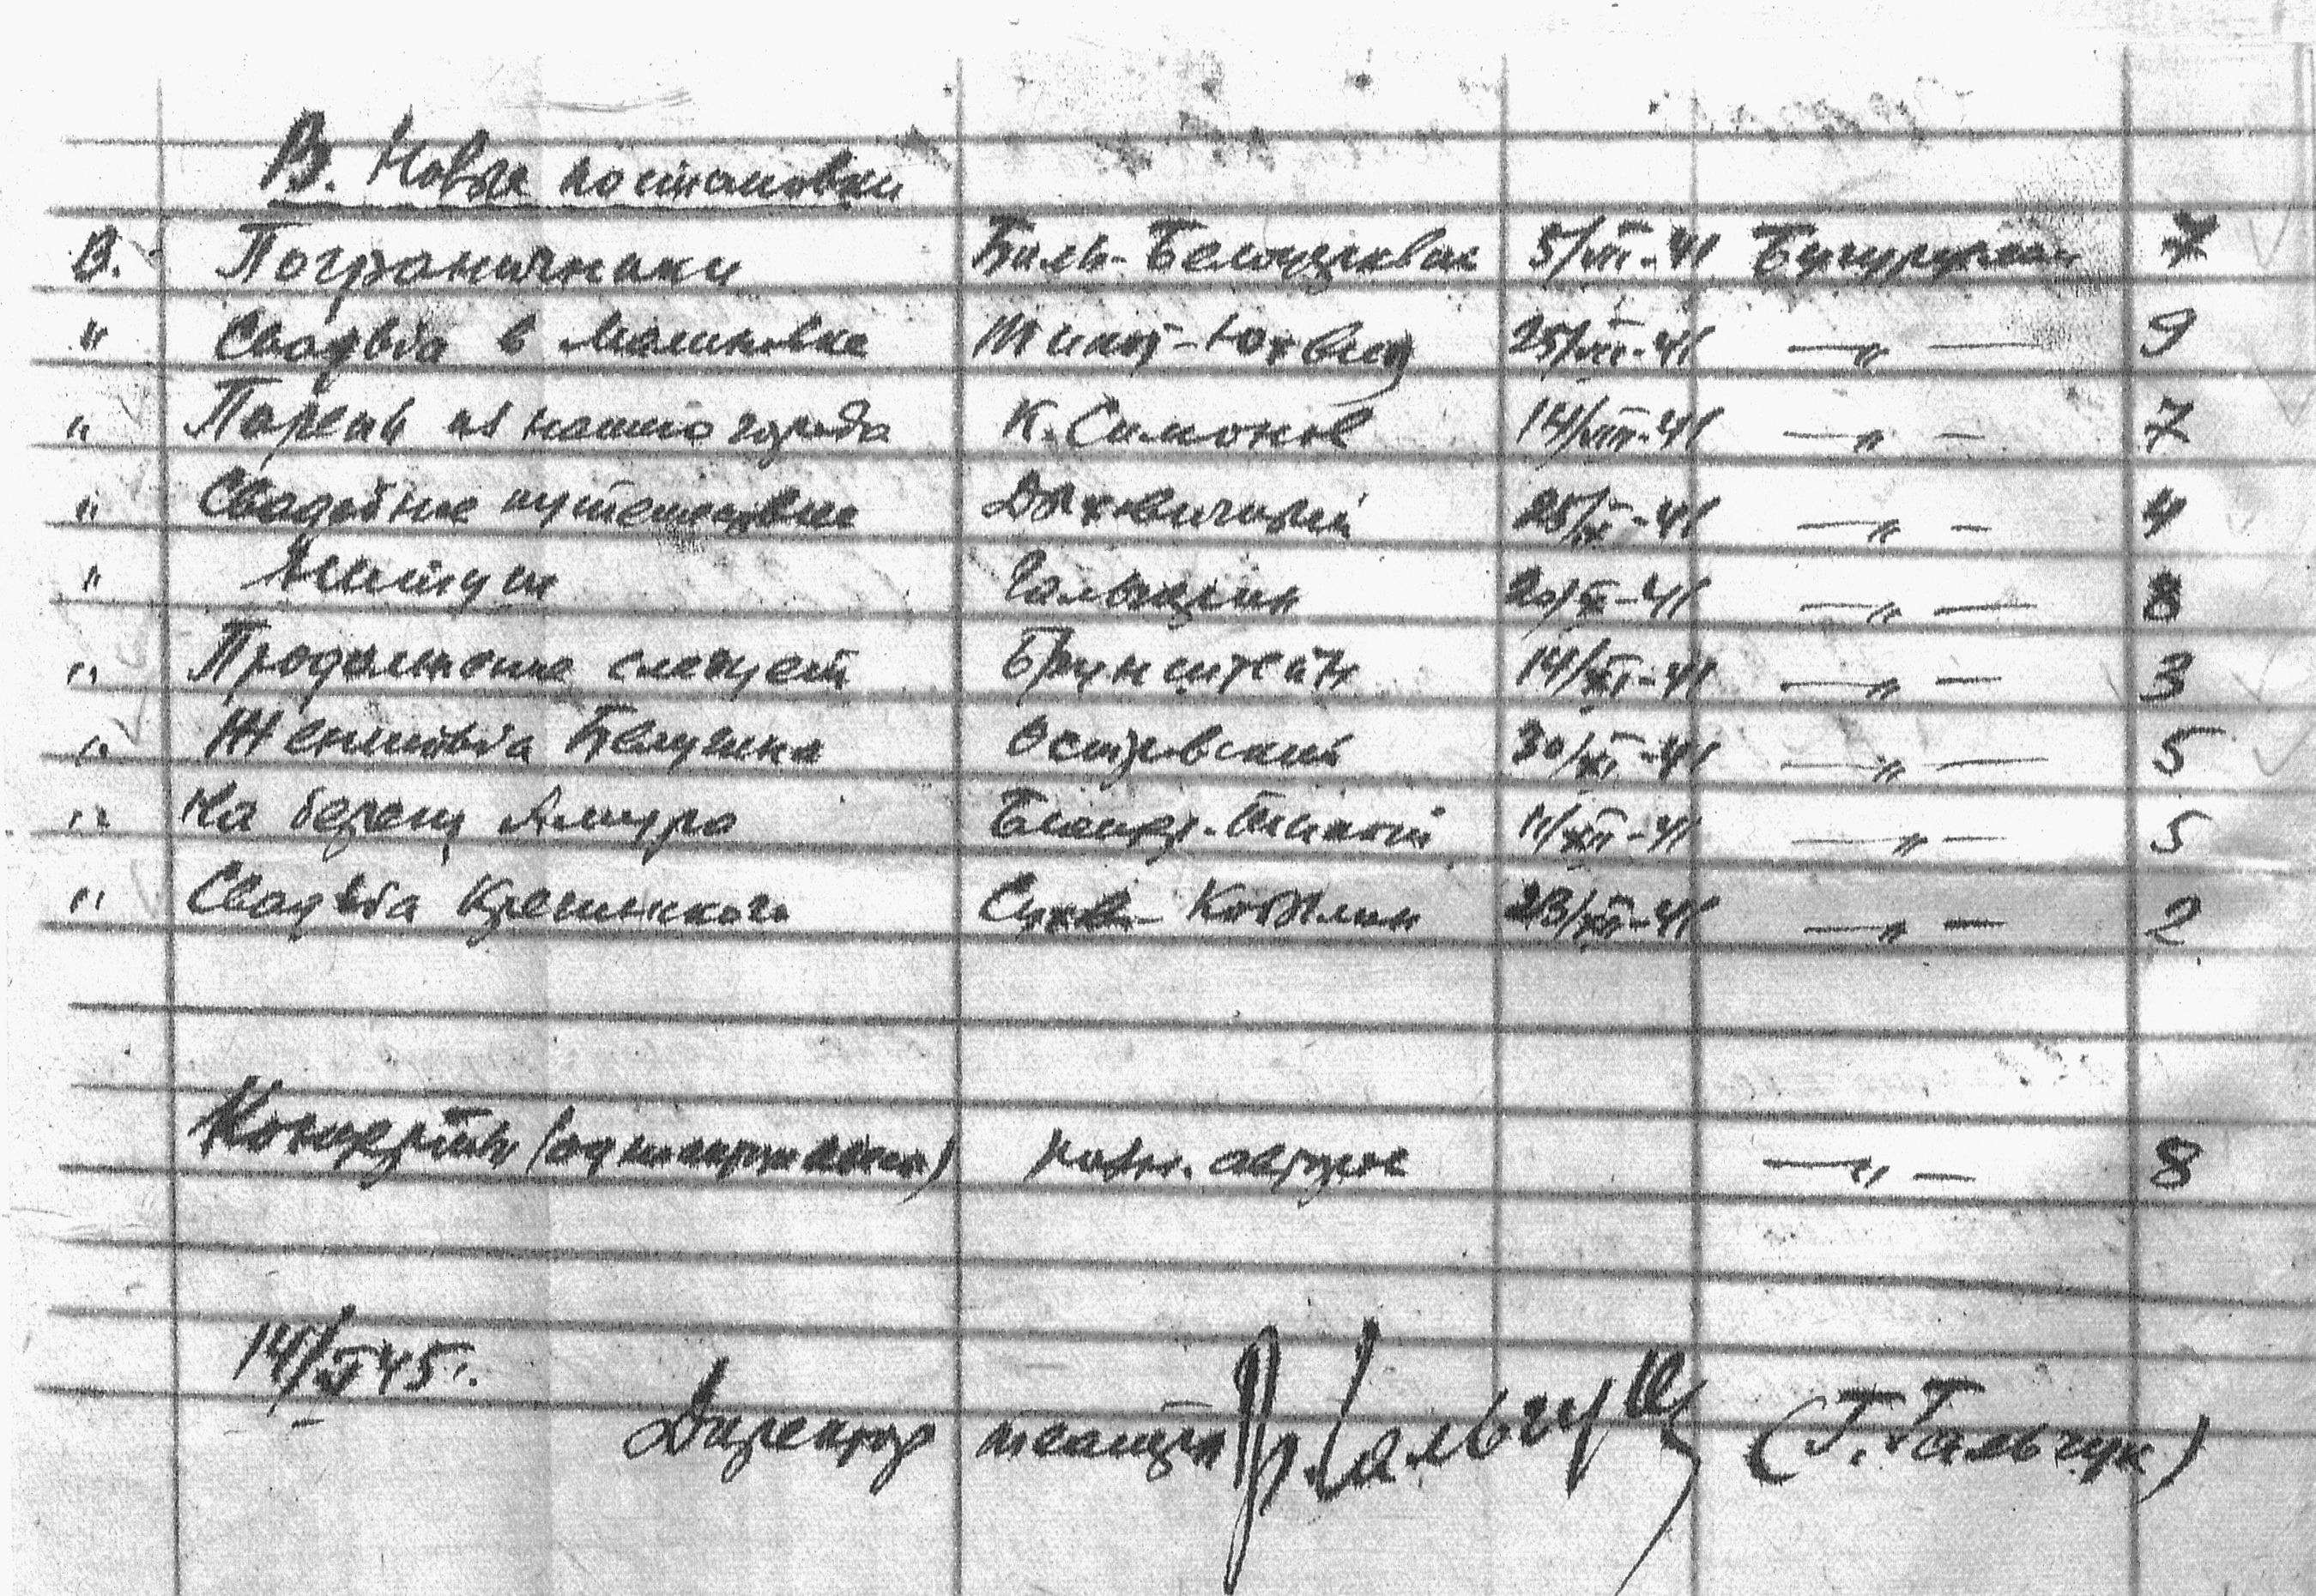 В. Новые постановки
В. Пограничники Биль-Белоцерковск 5/VII-41 Бугуруслан 7
" Свадьба в Малиновке Типот-Юхвид 25/VII-41 —"— 9
" Парень из нашего города К. Симонов 14/VIII-41 —"— 7
" Свадебное путешествие Дыховичный 25/IX-41 —"— 4
" Гальперин 20/X-41 —"— 8
" Продолжение следует Брунштейн 14/XI-41 —"— 3
" Женитьба Белугина Островский 30/XI-41 —"— 5
" На берегу Амура 11/XII-41 —"— 5
" Свадьба Кречинского Сухов-Кобылин 23/XII-41 —"— 2
Концерты авторов —"— 8
14/ 45г.
Директор театра (Г. Гальчук)